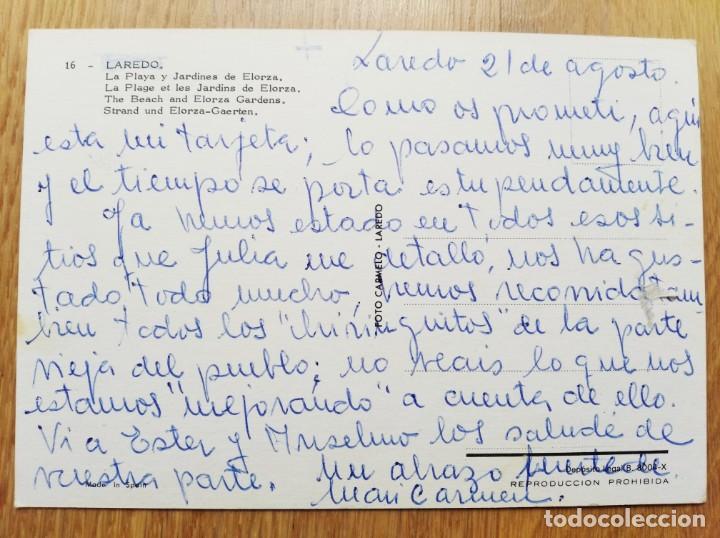 16 - LAREDO.
La Playa y Jardines de Elorza.
La Plage et les Jardins de Elorza.
The Beach and Elorza Gardens.
Strand und Elorza-Gaerten.
Laredo 21 de agosto.
Como os prometi, aqui
esta mi tarjeta; lo pasamos muy bien
y el tiempo se porta estupendamente.
Ya hemos estado en todos esos si-
tios que Julia me detalló, nos ha gus-
tado todo mucho, hemos recorrido tam-
bien todos los "chiringuitos" de la parte
vieja del pueblo; no veais lo que nos
estamos "mejorando" a cuenta de ello.
Vi a Ester y Anselmo los saludé de
vuestra parte. Un abrazo fuerte de
Mari Carmen.
FOTO CARMELO - LAREDO
Depósito Legal B. 8004-X
REPRODUCCION PROHIBIDA
Made in Spain
todocoleccion